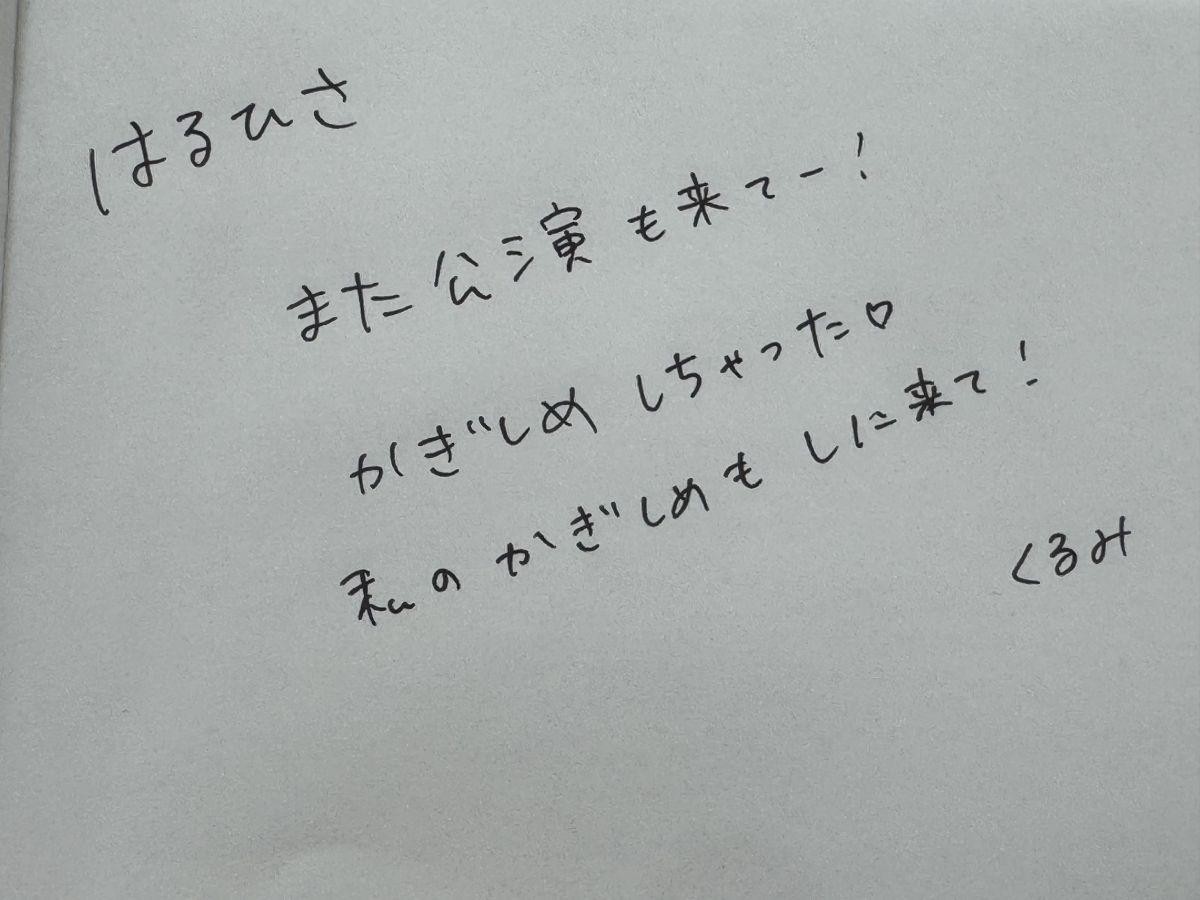 はるひさ
また公演も来てー!
かぎしめしちゃった♡
私のかぎしめもしに来て!
くるみ